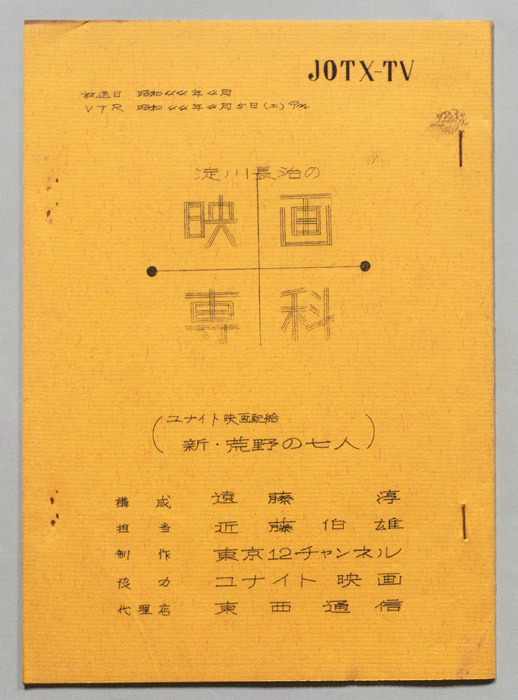 JOTX-TV
放送日 昭和44年4月
VTR 昭和44年4月5日(土)
淀川長治の
映画
専科
ユナイト映画配給
新・荒野の七人
構成 遠藤 淳
担当 近藤伯雄
制作 東京12チャンネル
協力 ユナイト映画
代理店 東西通信